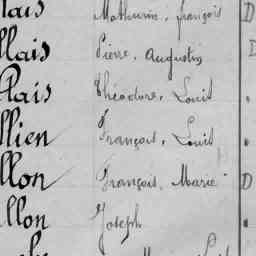 lais Mathurin, françois D
llais Pierre, Augustin D
lais Théodore, Louis "
llien François, Louis "
llon François, Marie D
llon Joseph "